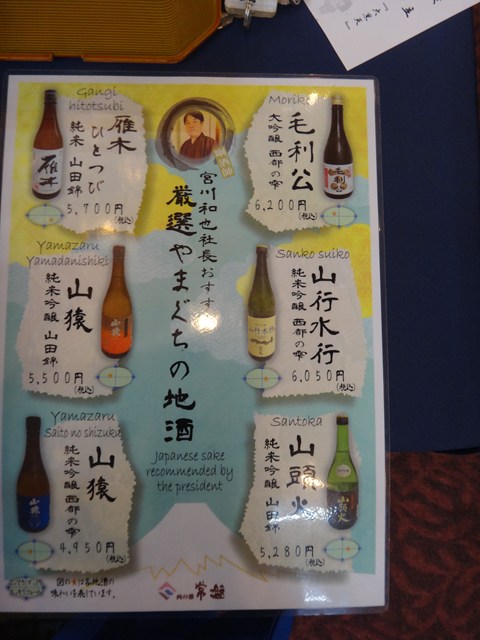 Gangi
hitotsubi
雁木
ひとつび
純米 山田錦
5,700円
(税込)
雁木
Yamazaru
Yamadanishiki
山猿
純米吟醸 山田錦
5,500円
(税込)
山猿
Yamazaru
Saito no shizuku
山猿
純米吟醸 西都の雫
4,950円
(税込)
山猿
宮川和也社長おすすめ
厳選やまぐちの地酒
Japanese sake
recommended by
the president
毛利公
大吟醸 西都の雫
6,200円
(税込)
毛利公
Sanko suiko
山行水行
純米吟醸 西都の雫
6,050円
(税込)
山行水行
Santoka
山頭火
純米吟醸 山田錦
5,280円
(税込)
山頭火
図の★は各地酒の
味わいを表しています。